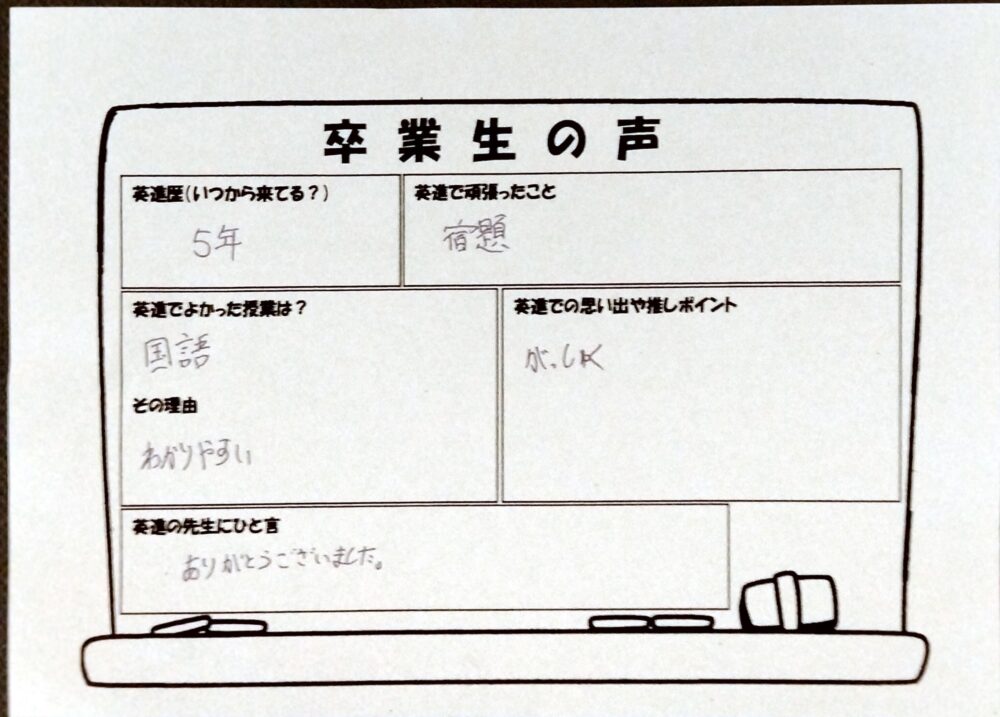 卒業生の声
英進歴(いつから来てる?)
5年
英進で頑張ったこと
宿題
英進でよかった授業は?
国語
その理由
わかりやすい
英進での思い出や推しポイント
がっしゅく
英進の先生にひと言
ありがとうございました。